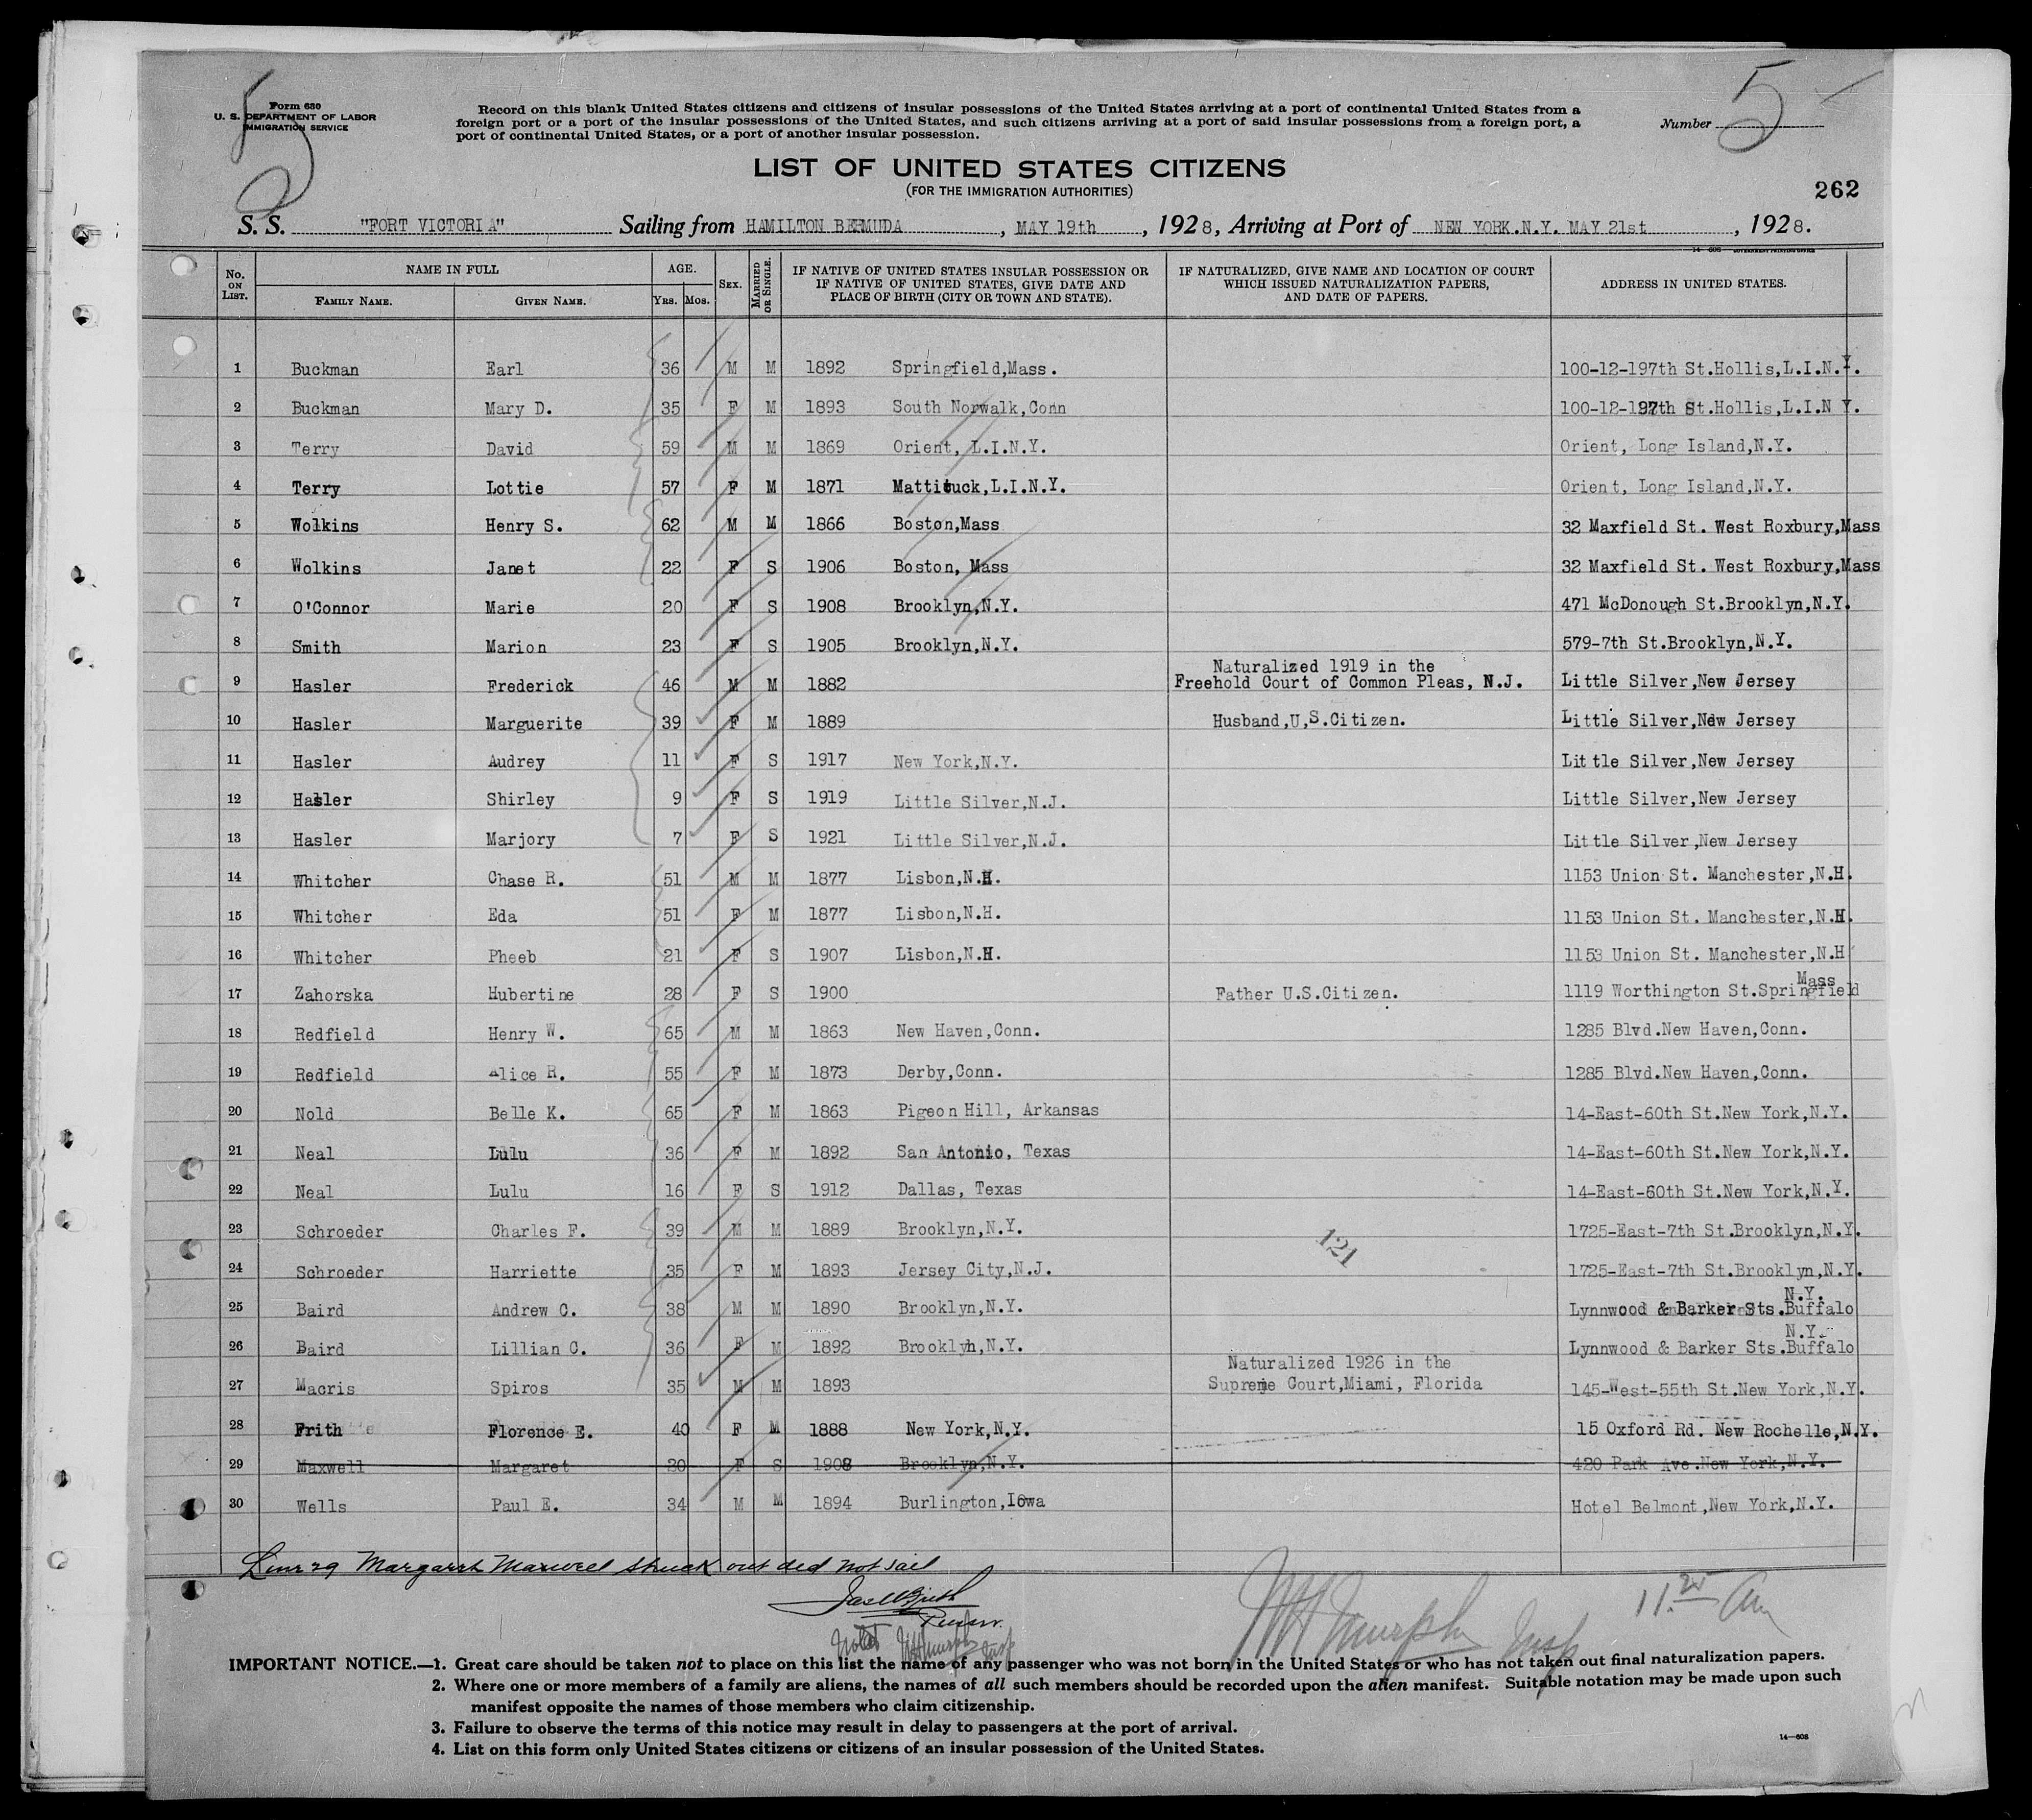 5
5
Form 630
U. S. DEPARTMENT OF LABOR
IMMIGRATION SERVICE
Record on this blank United States citizens and citizens of insular possessions of the United States arriving at a port of continental United States from a
foreign port or a port of the insular possessions of the United States, and such citizens arriving at a port of said insular possessions from a foreign port, a
port of continental United States, or a port of another insular possession.
Number
LIST OF UNITED STATES CITIZENS
(FOR THE IMMIGRATION AUTHORITIES)
262
S. S. "FORT VICTORIA" Sailing from HAMILTON BERMUDA, MAY 19th, 1928, Arriving at Port of NEW YORK.N.Y. MAY 21st, 1928.
14—608 GOVERNMENT PRINTING OFFICE
No. ON LIST. NAME IN FULL FAMILY NAME. GIVEN NAME. AGE. YRS. MOS. SEX. MARRIED OR SINGLE. IF NATIVE OF UNITED STATES INSULAR POSSESSION OR IF NATIVE OF UNITED STATES, GIVE DATE AND PLACE OF BIRTH (CITY OR TOWN AND STATE). IF NATURALIZED, GIVE NAME AND LOCATION OF COURT WHICH ISSUED NATURALIZATION PAPERS, AND DATE OF PAPERS. ADDRESS IN UNITED STATES.
1 Buckman Earl 36 M M 1892 Springfield,Mass. 100-12-197th St.Hollis,L.I.N.Y.
2 Buckman Mary D. 35 F M 1893 South Norwalk,Conn 100-12-197th St.Hollis,L.I.N Y.
3 Terry David 59 M M 1869 Orient, L.I.N.Y. Orient, Long Island,N.Y.
4 Terry Lottie 57 F M 1871 Mattituck,L.I.N.Y. Orient, Long Island,N.Y.
5 Wolkins Henry S. 62 M M 1866 Boston,Mass 32 Maxfield St. West Roxbury,Mass
6 Wolkins Janet 22 F S 1906 Boston, Mass 32 Maxfield St. West Roxbury,Mass
7 O'Connor Marie 20 F S 1908 Brooklyn,N.Y. 471 McDonough St.Brooklyn,N.Y.
8 Smith Marion 23 F S 1905 Brooklyn,N.Y. 579-7th St.Brooklyn,N.Y.
9 Hasler Frederick 46 M M 1882 Naturalized 1919 in the Freehold Court of Common Pleas, N.J. Little Silver,New Jersey
10 Hasler Marguerite 39 F M 1889 Husband,U,S.Citizen. Little Silver,New Jersey
11 Hasler Audrey 11 F S 1917 New York,N.Y. Little Silver,New Jersey
12 Hasler Shirley 9 F S 1919 Little Silver,N.J. Little Silver,New Jersey
13 Hasler Marjory 7 F S 1921 Little Silver,N.J. Little Silver,New Jersey
14 Whitcher Chase R. 51 M M 1877 Lisbon,N.H. 1153 Union St. Manchester,N.H.
15 Whitcher Eda 51 F M 1877 Lisbon,N.H. 1153 Union St. Manchester,N.H.
16 Whitcher Pheeb 21 F S 1907 Lisbon,N.H. 1153 Union St. Manchester,N.H
17 Zahorska Hubertine 28 F S 1900 Father U.S.Citizen. 1119 Worthington St.Springfield Mass
18 Redfield Henry W. 65 M M 1863 New Haven,Conn. 1285 Blvd.New Haven,Conn.
19 Redfield Alice R. 55 F M 1873 Derby,Conn. 1285 Blvd.New Haven,Conn.
20 Nold Belle K. 65 F M 1863 Pigeon Hill, Arkansas 14-East-60th St.New York,N.Y.
21 Neal Lulu 36 F M 1892 San Antonio, Texas 14-East-60th St.New York,N.Y.
22 Neal Lulu 16 F S 1912 Dallas, Texas 14-East-60th St.New York,N.Y.
23 Schroeder Charles F. 39 M M 1889 Brooklyn,N.Y. 1725-East-7th St.Brooklyn,N.Y.
121
24 Schroeder Harriette 35 F M 1893 Jersey City,N.J. 1725-East-7th St.Brooklyn,N.Y.
25 Baird Andrew C. 38 M M 1890 Brooklyn,N.Y. Lynnwood & Barker Sts.Buffalo N.Y.
26 Baird Lillian C. 36 F M 1892 Brooklyn,N.Y. Lynnwood & Barker Sts.Buffalo N.Y.
27 Macris Spiros 35 M M 1893 Naturalized 1926 in the Supreme Court,Miami, Florida 145-West-55th St.New York,N.Y.
28 Frith Florence E. 40 F M 1888 New York,N.Y. 15 Oxford Rd. New Rochelle,N.Y.
29 Maxwell Margaret 20 F S 1908 Brooklyn,N.Y. 420 Park Ave.New York,N.Y.
30 Wells Paul E. 34 M M 1894 Burlington,Iowa Hotel Belmont,New York,N.Y.
Line 29 Margaret Maxwell struck out did not sail
Purser.
Noted WHMurphy Insp
WH Murphy Insp
11.25 Am
IMPORTANT NOTICE.—1. Great care should be taken not to place on this list the name of any passenger who was not born in the United States or who has not taken out final naturalization papers.
2. Where one or more members of a family are aliens, the names of all such members should be recorded upon the alien manifest. Suitable notation may be made upon such
manifest opposite the names of those members who claim citizenship.
3. Failure to observe the terms of this notice may result in delay to passengers at the port of arrival.
4. List on this form only United States citizens or citizens of an insular possession of the United States.
14—608